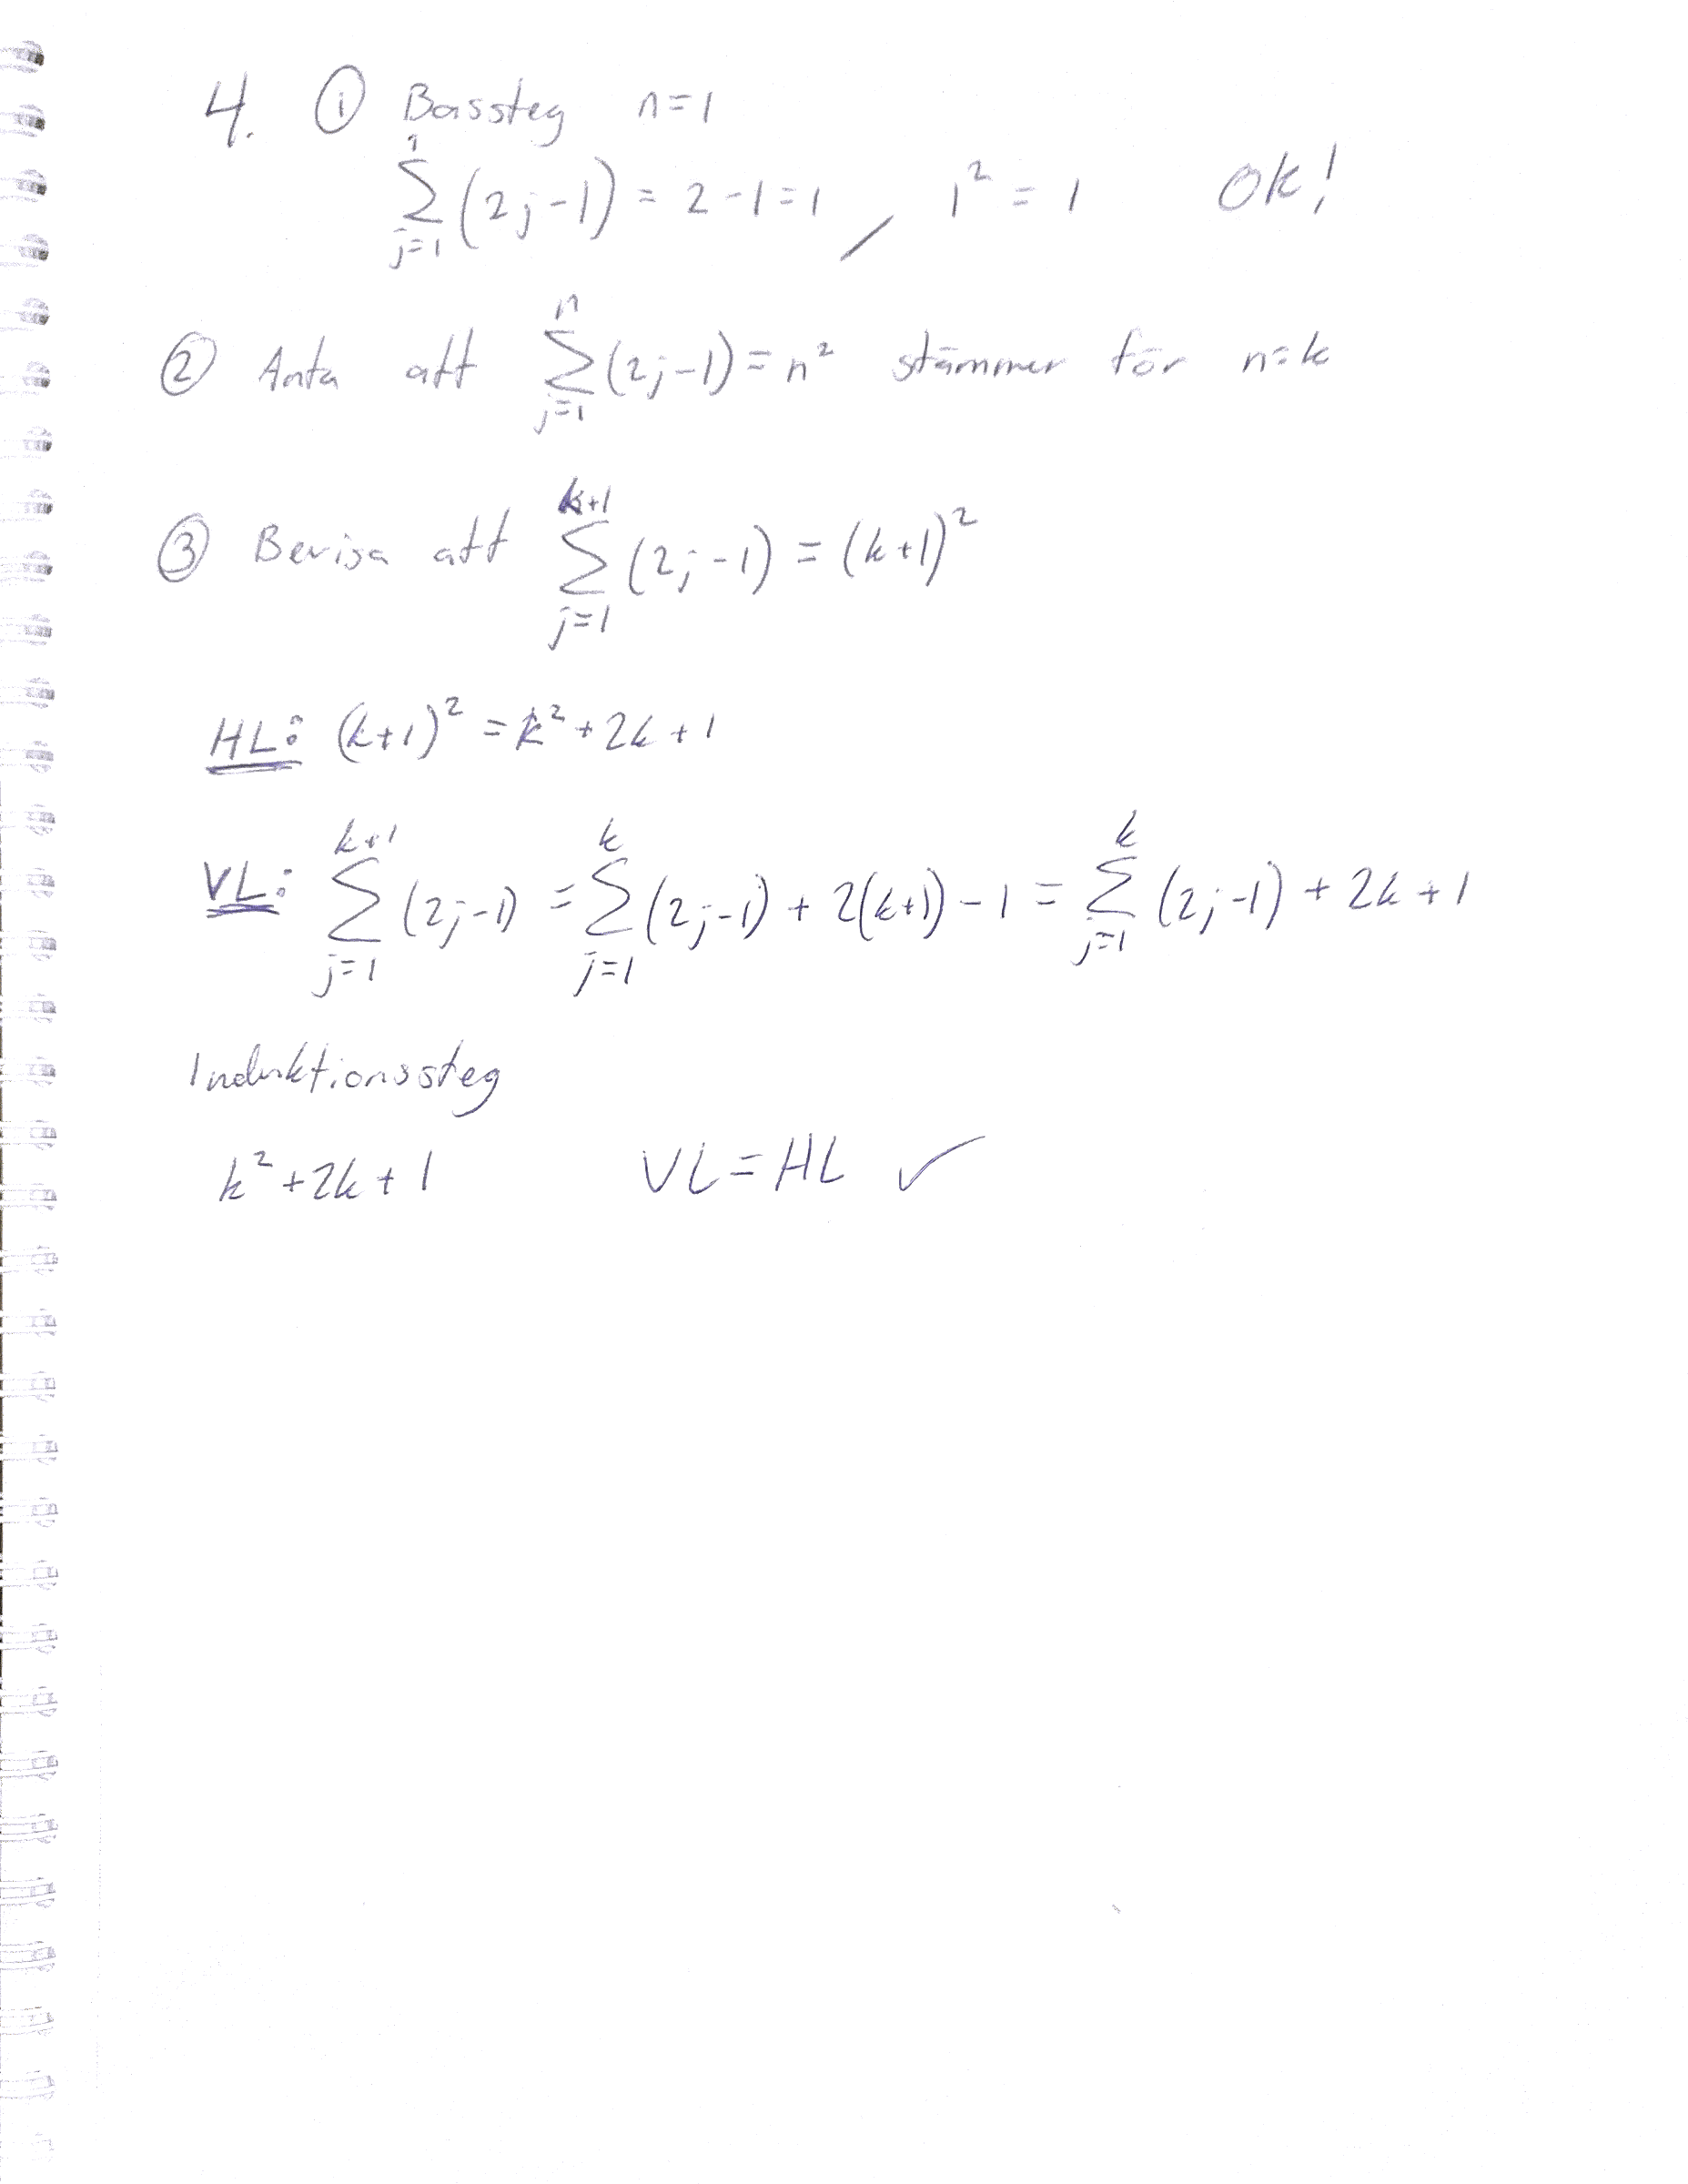 4. ① Bassteg n=1
1∑j=1 (2j-1) = 2-1=1 , 1² = 1 Ok!
② Anta att n∑j=1 (2j-1) = n² stämmer för n=k
③ Bevisa att k+1∑j=1 (2j-1) = (k+1)²
HL: (k+1)² = k²+2k+1
VL: k+1∑j=1 (2j-1) = k∑j=1 (2j-1) + 2(k+1) - 1 = k∑j=1 (2j-1) + 2k + 1
Induktionssteg
k²+2k+1 VL=HL ✓